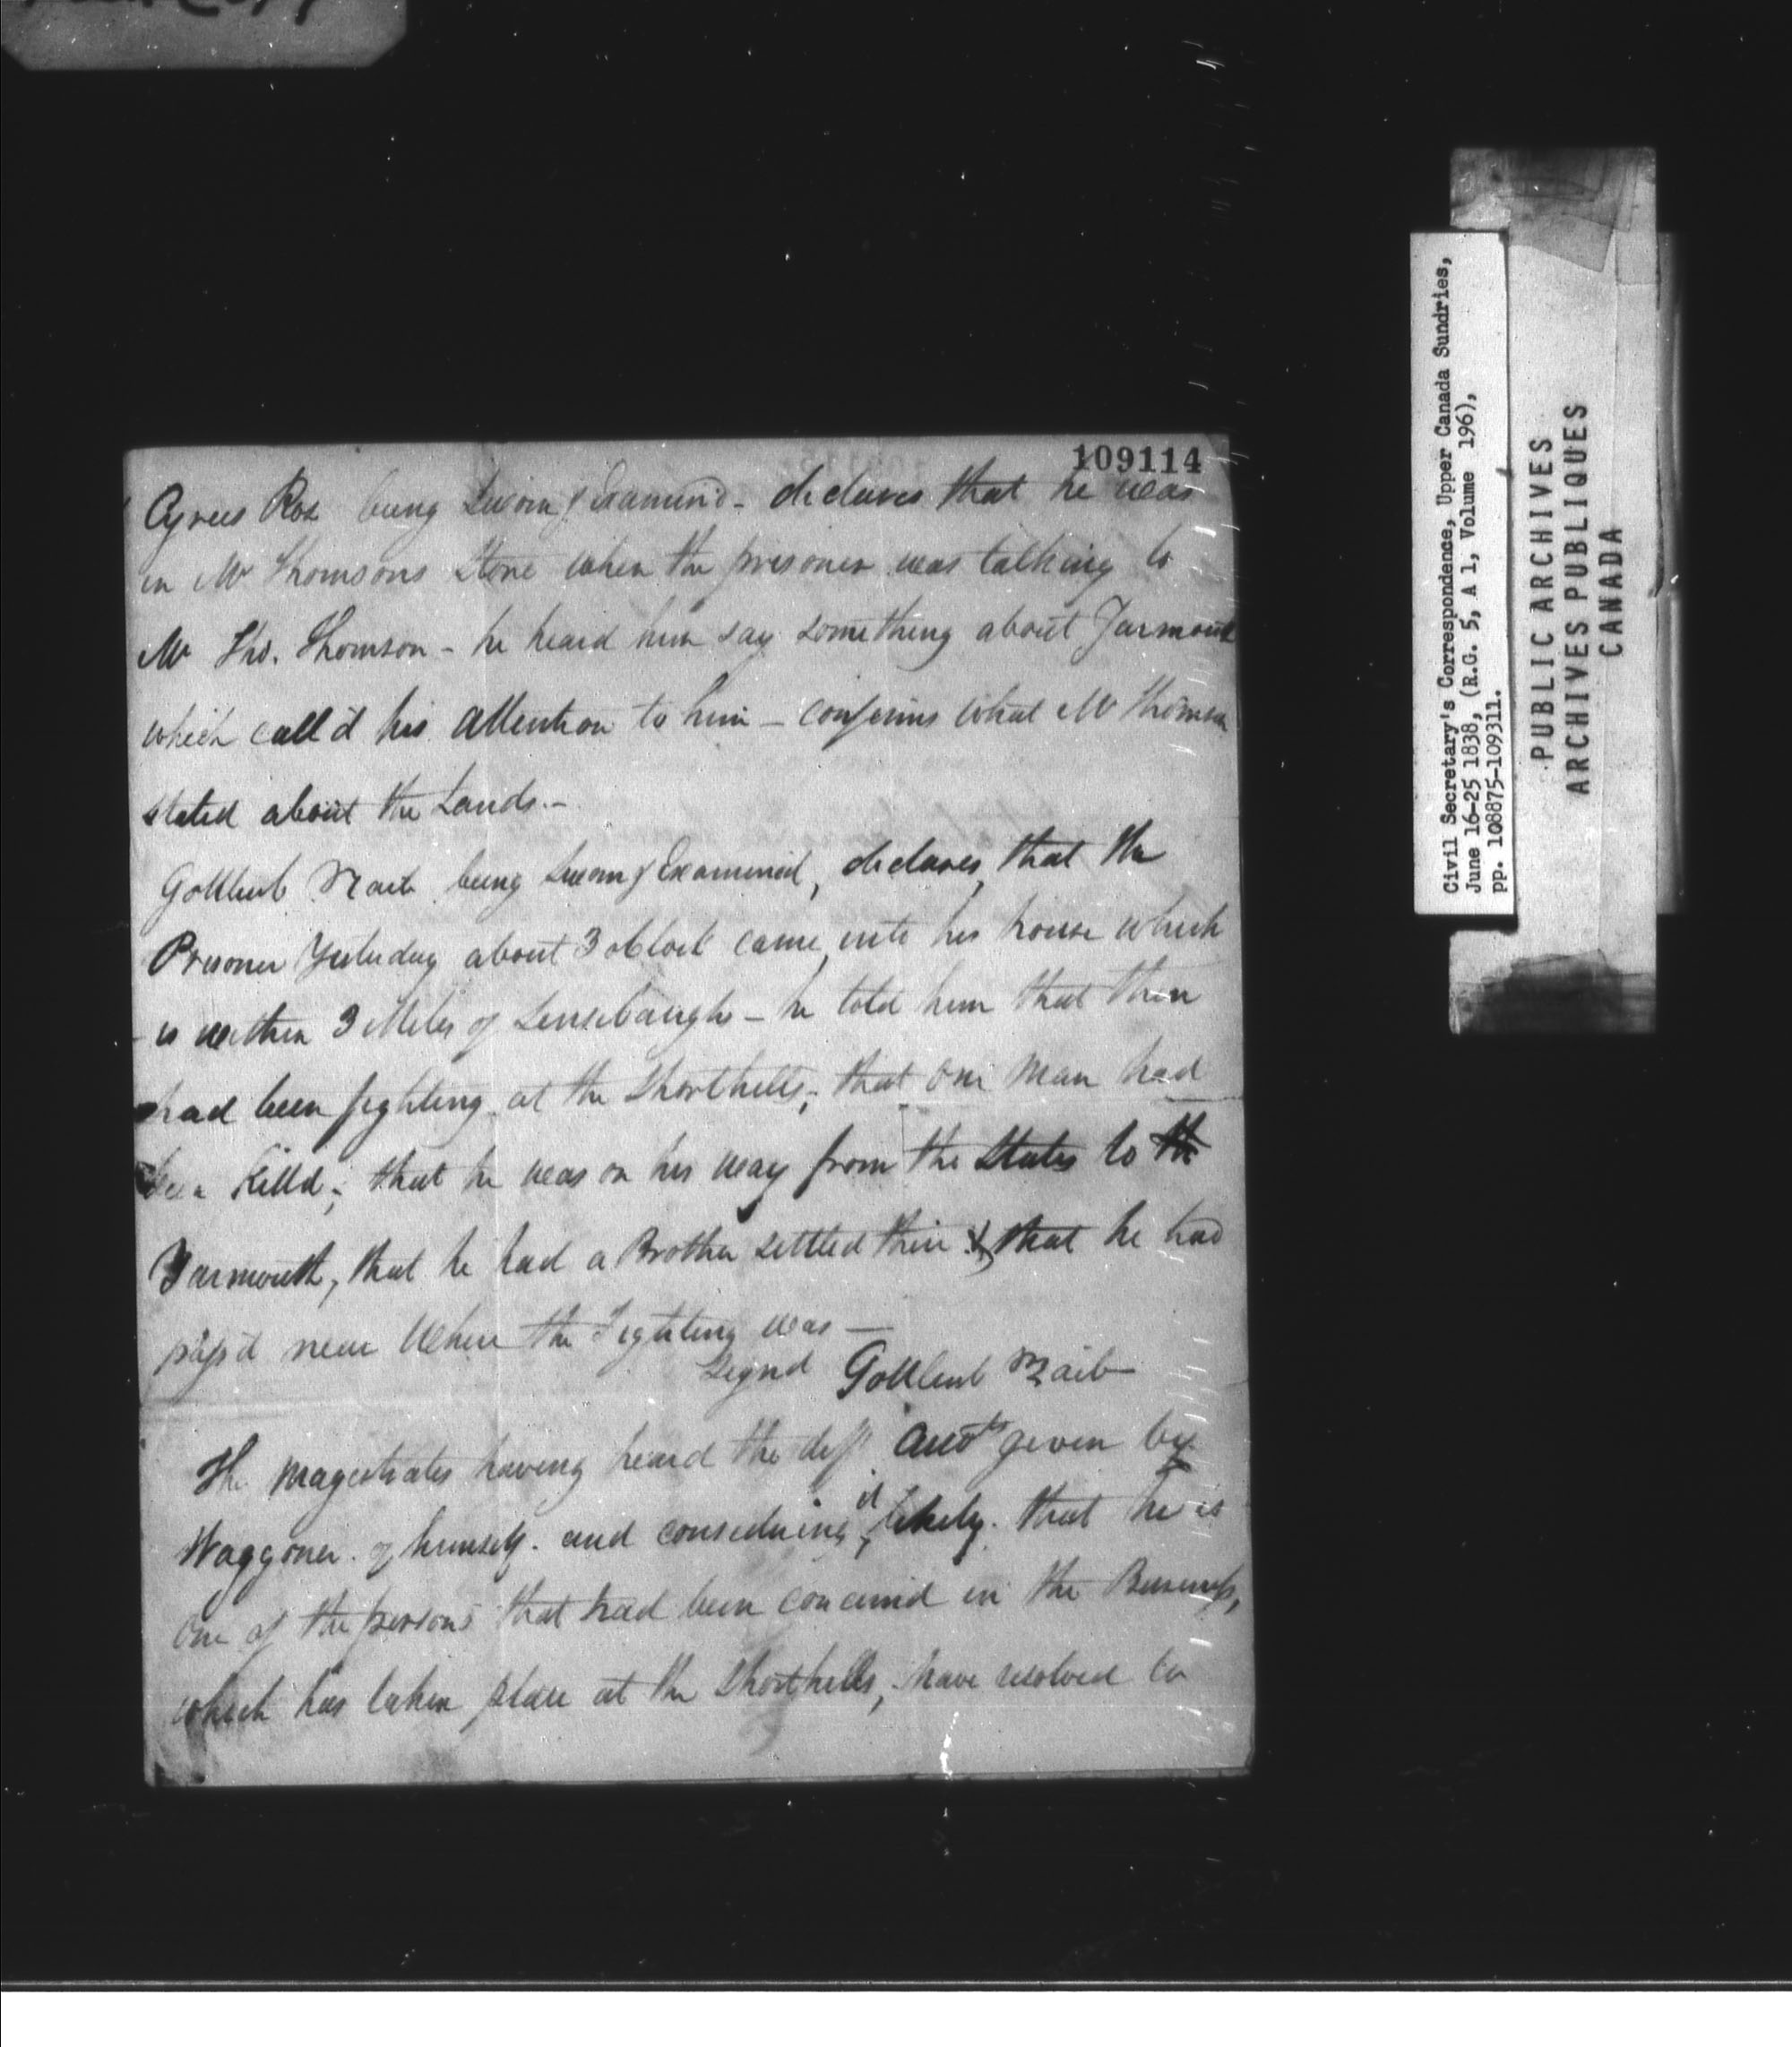 109114
Cyrus Ros being Sworn & Examin'd - declares that he was
in Mr Thomsons Store when the prisoner was talking to
Mr Tho. Thomson - he heard him say something about Yarmouth
which call'd his attention to him - confirms what Mr Thomson
stated about the Lands. -
Gottleub being Sworn & Examined, declares, that the
Prisoner Yesterday about 3 oClock came into his house which
is within 3 Miles of - he told him that there
had been fighting at the Shorthills; that one man had
been Killd; that he was on his way from the States to the
Yarmouth, that he had a Brother settled there & that he had
pass'd near Where the Fighting was —
Signd Gottleub
The Magistrates having heard the diff. Accts given by
Waggoner of himself. and considering it likely that he is
One of the persons that had been concernd in the Business,
which has taken place at the Shorthills, have resolved to
Civil Secretary's Correspondence, Upper Canada Sundries,
June 16-25 1838, (R.G. 5, A 1, Volume 196),
pp. 108875-109311.
PUBLIC ARCHIVES
ARCHIVES PUBLIQUES
CANADA